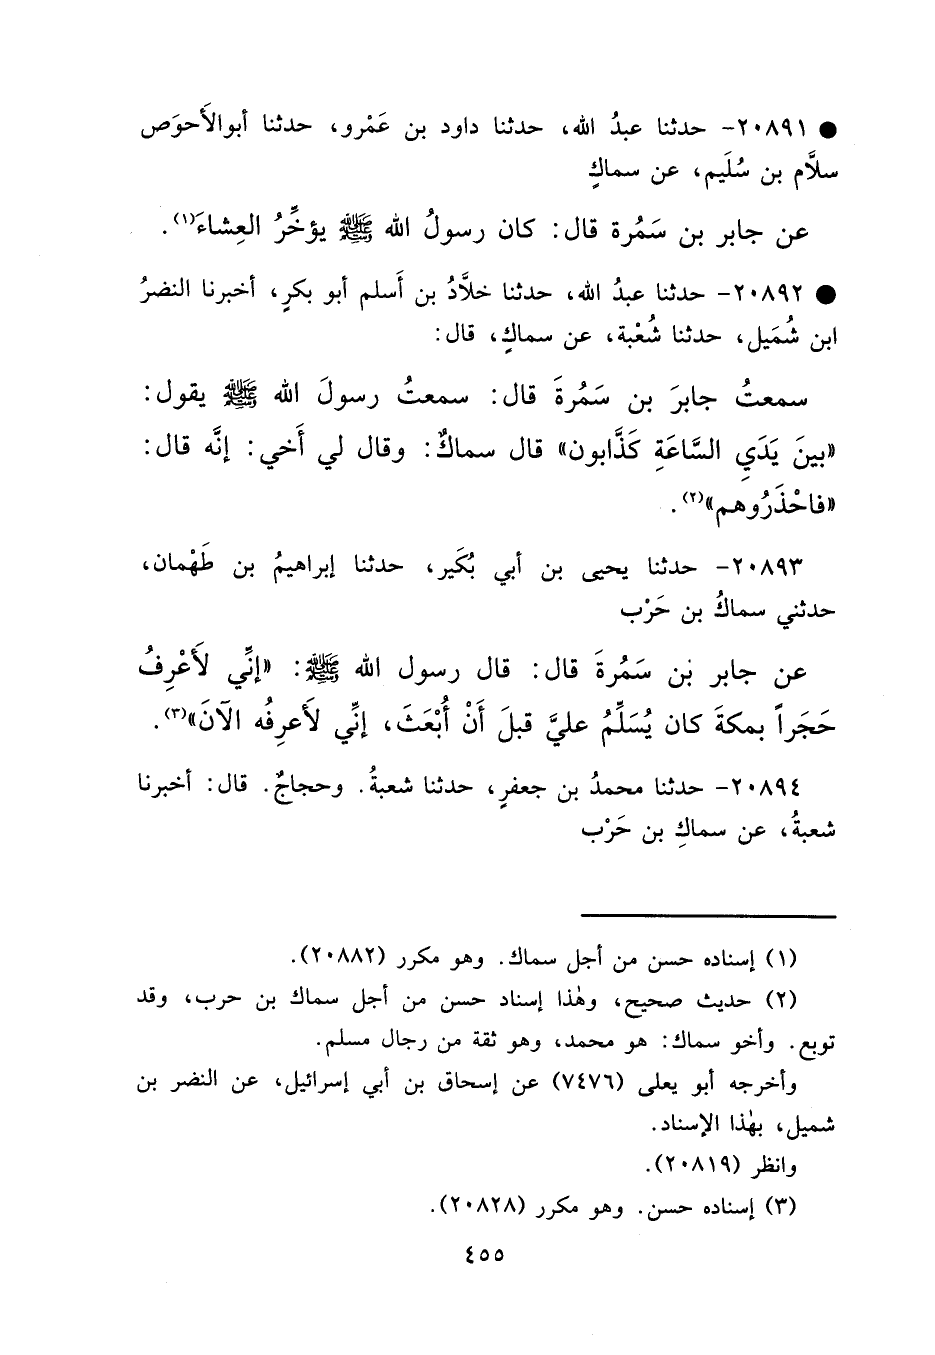 ● ٢٠٨٩١- حدثنا عبدُ الله، حدثنا داود بن عَمْرو، حدثنا أبوالأَحوَص
سلاَّم بن سُلَيم، عن سماكٍ
عن جابر بن سَمُرة قال: كان رسولُ الله ﷺ يؤخِّرُ العِشاءَ(١).
● ٢٠٨٩٢- حدثنا عبدُ الله، حدثنا خلاَّدُ بن أَسلم أبو بكرٍ، أخبرنا النضرُ
ابن شُمَيل، حدثنا شُعْبة، عن سماكٍ، قال:
سمعتُ جابرَ بن سَمُرةَ قال: سمعتُ رسولَ الله ﷺ يقول:
«بينَ يَدَيِ السَّاعَةِ كَذَّابون» قال سماكٌ: وقال لي أَخي: إنَّه قال:
«فاحْذَرُوهم»(٢).
٢٠٨٩٣- حدثنا يحيى بن أبي بُكَير، حدثنا إبراهيمُ بن طَهْمان،
حدثني سماكُ بن حَرْب
عن جابر بن سَمُرةَ قال: قال رسول الله ﷺ: «إنِّي لأَعْرِفُ
حَجَراً بمكةَ كان يُسَلِّمُ عليَّ قبلَ أَنْ أُبْعَثَ، إنِّي لأَعرِفُه الآنَ»(٣).
٢٠٨٩٤- حدثنا محمدُ بن جعفرٍ، حدثنا شعبةُ. وحجاجٌ. قال: أخبرنا
شعبةُ، عن سماكِ بن حَرْب
(١) إسناده حسن من أجل سماك. وهو مكرر (٢٠٨٨٢).
(٢) حديث صحيح، وهٰذا إسناد حسن من أجل سماك بن حرب، وقد
توبع. وأخو سماك: هو محمد، وهو ثقة من رجال مسلم.
وأخرجه أبو يعلى (٧٤٧٦) عن إسحاق بن أبي إسرائيل، عن النضر بن
شميل، بهٰذا الإسناد.
وانظر (٢٠٨١٩).
(٣) إسناده حسن. وهو مكرر (٢٠٨٢٨).
٤٥٥